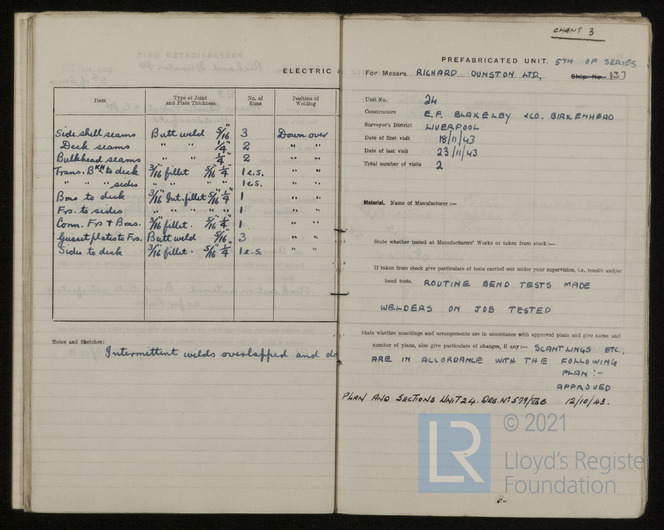 ELECTRIC
Item Type of Joint and Plate Thickness No. of Runs Position of Welding
Side shell seams Butt weld 5/16" 3 Down over
Deck seams " " 1/4" 2 " "
Bulkhead seams " " 1/4" 2 " "
Trans. BKH to deck 3/16 fillet 5/16" 1/4" 1 e.s. " "
" " " sides " " " " 1 e.s. " "
Bms to deck 3/16 Int. fillet 5/16 1/4" 1 " "
Frs. to sides " " " " " 1 " "
Conn. Frs & Bms. 3/16 fillet. 5/16 1/4" 1 " "
Gusset plates to Frs. Butt weld 5/16 3 " "
Sides to deck 3/16 fillet. 5/16 1/4" 1 e.s. " "
Notes and Sketches:
Intermittent welds overlapped and do
CHANT 3
PREFABRICATED UNIT. 5TH OF SERIES
For Messrs. RICHARD DUNSTON LTD, Ship No. 137
Unit No. 24
Constructors E.F. BLAKELEY &CO. BIRKENHEAD
Surveyor's District LIVERPOOL
Date of first visit 18/11/43
Date of last visit 23/11/43
Total number of visits 2
Material. Name of Manufacturer :—
State whether tested at Manufacturers' Works or taken from stock :—
If taken from stock give particulars of tests carried out under your supervision, i.e. tensile and/or
bend tests. ROUTINE BEND TESTS MADE
WELDERS ON JOB TESTED
State whether scantlings and arrangements are in accordance with approved plans and give name and
number of plans, also give particulars of changes, if any :— SCANTLINGS ETC.,
ARE IN ACCORDANCE WITH THE FOLLOWING
PLAN :-
APPROVED
PLAN AND SECTIONS UNIT 24. DRG. No 579/ 12/10/43.
© 2021
LR
Lloyd's Registe
Foundation